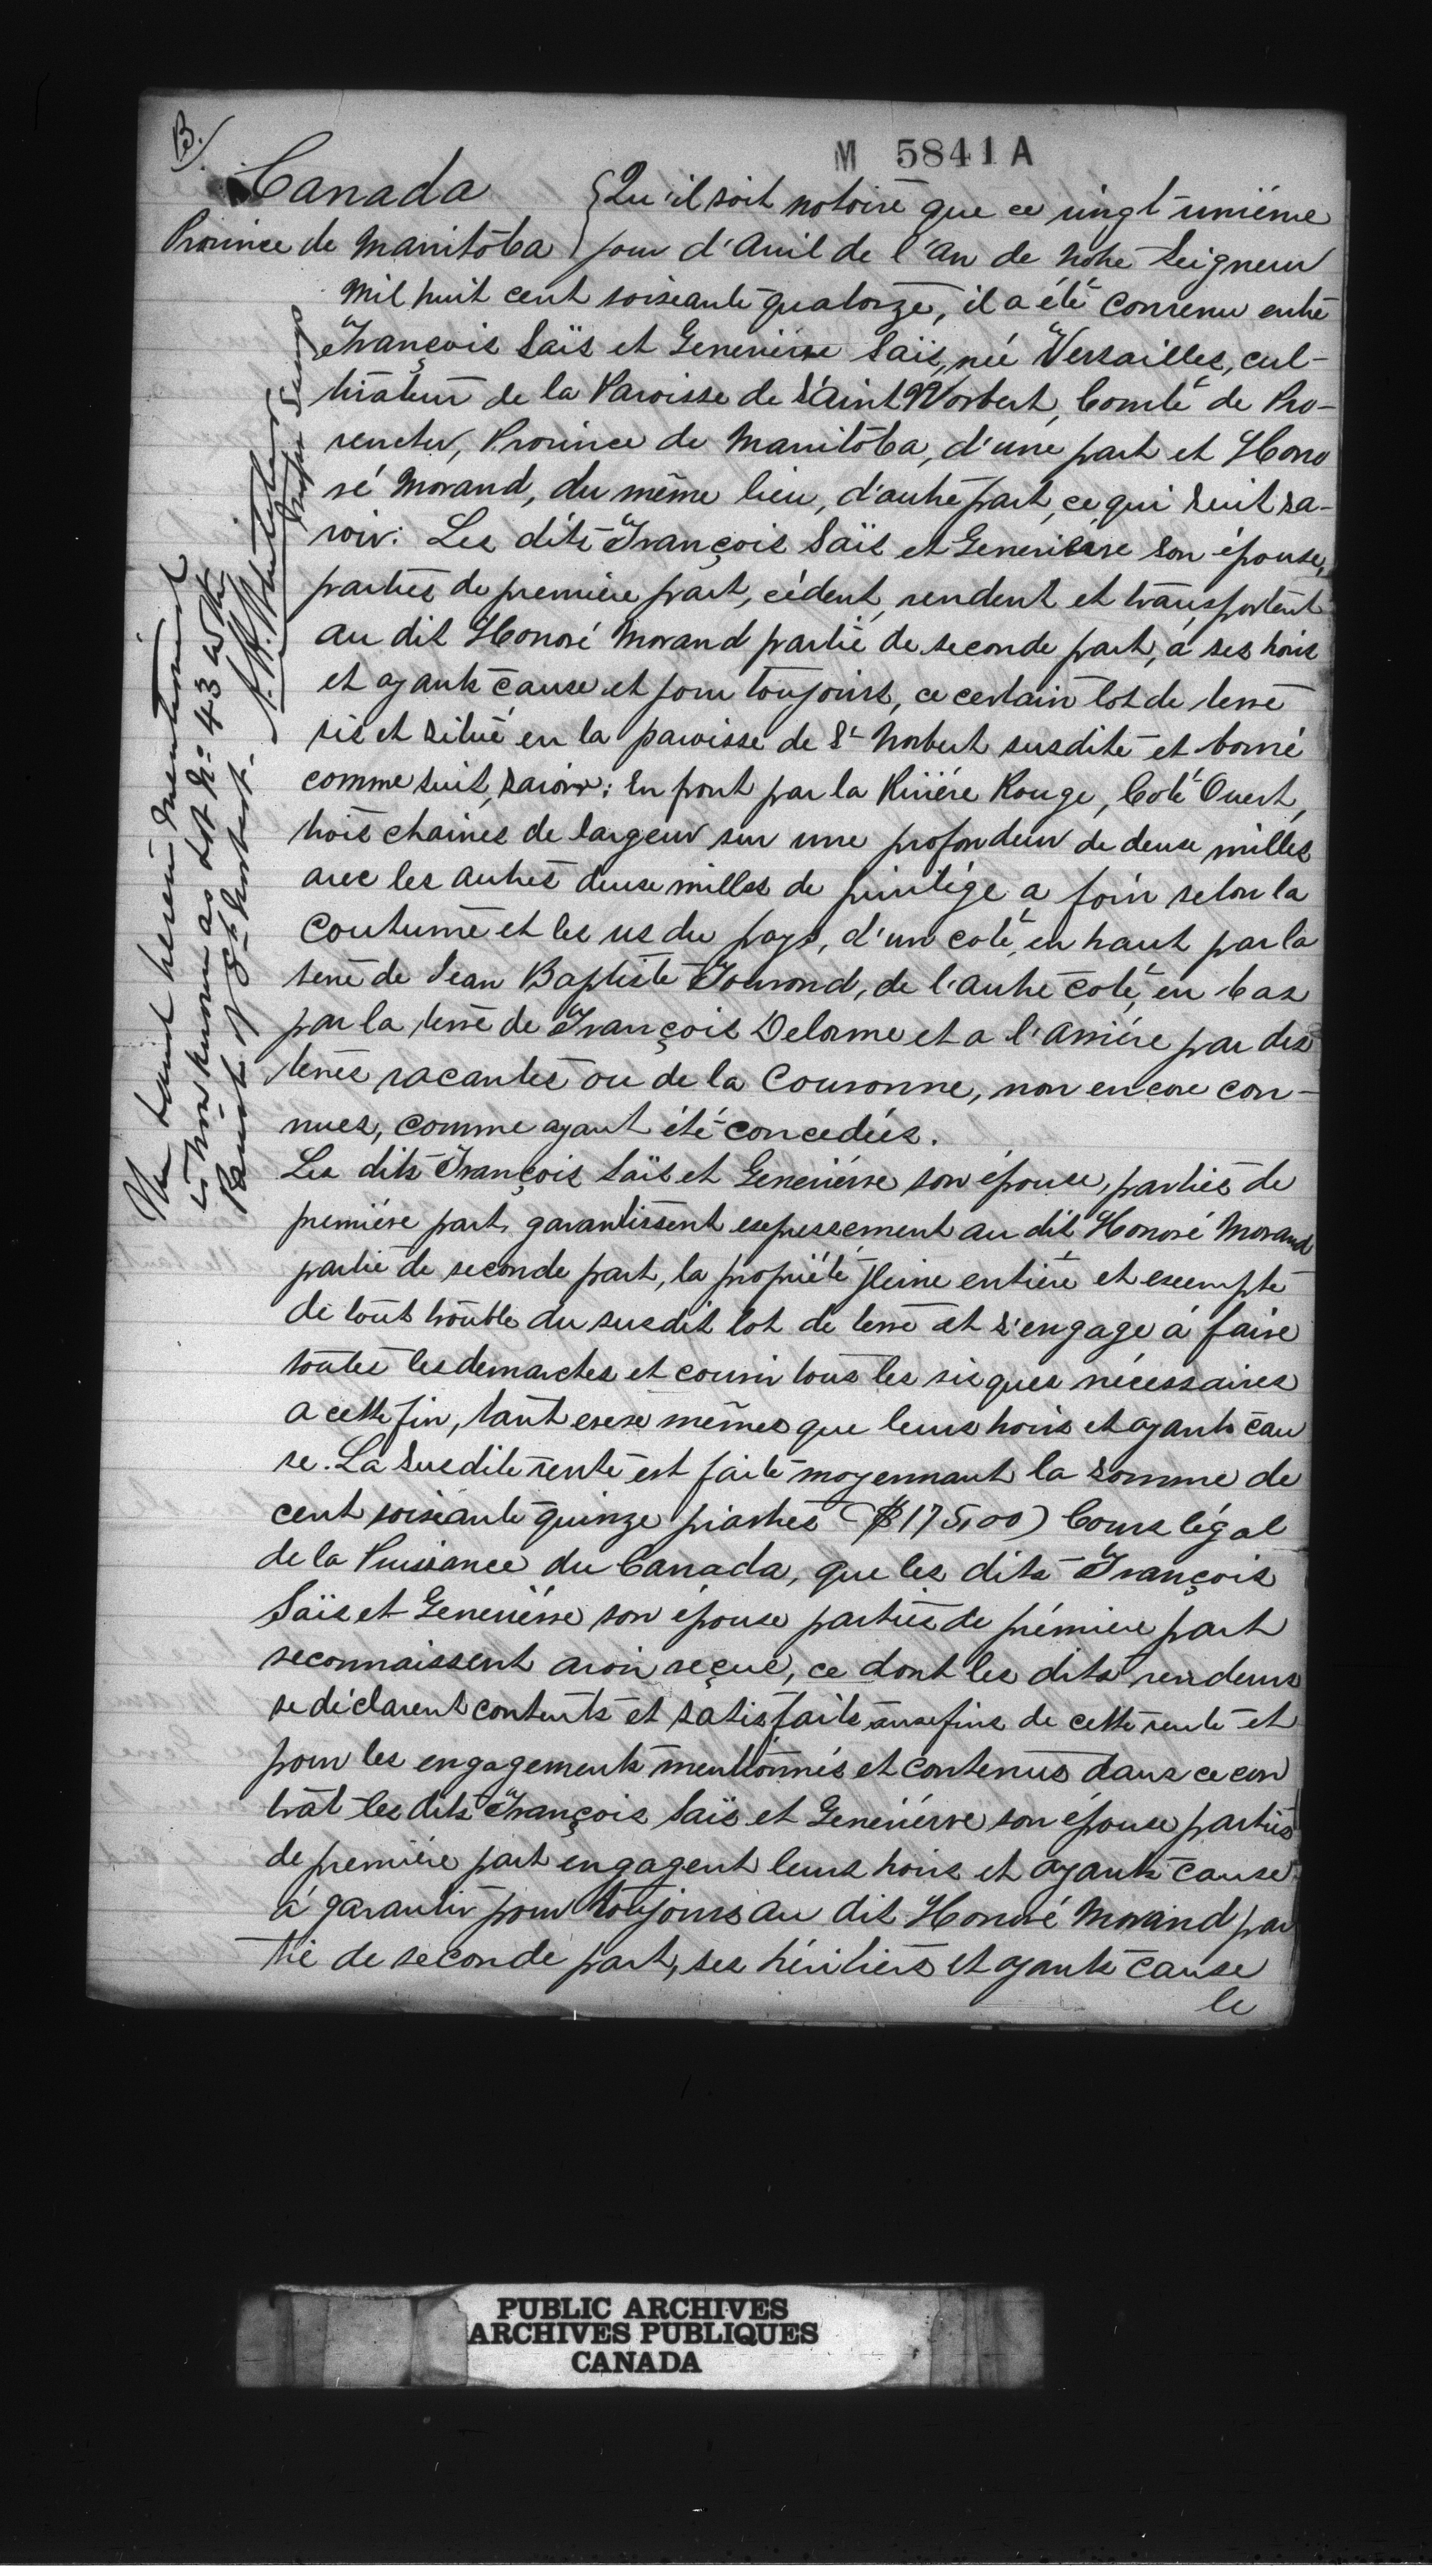 B.
M 5841 A
Canada
Province de Manitoba
Qu'il soit notoire que ce vingt-unième
jour d'Avril de l'An de Notre Seigneur
Mil huit cent soixante quatorze, il a été convenu entre
François Saïs et Geneviève Saïs, née Versailles, cul-
tivateur de la Paroisse de Saint Norbert, Comté de Pro-
vencher, Province de Manitoba, d'une part et Hono
ré Morand, du même lieu, d'autre part, ce qui suit sa-
voir: Les dits François Saïs et Geneviève son épouse,
parties de première part, cèdent, vendent et transportent
au dit Honoré Morand partie de seconde part, à ses hoirs
et ayants cause et pour toujours, ce certain lot de terre
sis et situé en la paroisse de St Norbert susdite et borné
comme suit, savoir: En front par la Rivière Rouge, Coté Ouest,
trois chaines de largeur sur une profondeur de deux milles
avec les autres deux milles de privilége a foin selon la
Coutume et les us du pays, d'un coté, en haut par la
terre de Jean Baptiste Tourond, de l'autre coté, en bas
par la terre de François Delorme et a l'arrière par des
terres vacantes ou de la Couronne, non encore con-
nues, comme ayant été concedées.
Les dits François Saïs et Geneviève son épouse, parties de
première part, garantissent expressement au dit Honoré Morand
partie de seconde part, la propriété pleine entière et exempte
de tout trouble du susdit lot de terre et s'engage à faire
toutes les demarches et courir tous les risques nécessaires
a cette fin, tant eux mêmes que leurs hoirs et ayants cau
se. La Susdite vente est faite moyennant la somme de
cent soixante quinze piastres ($175,00) Cours légal
de la Puissance du Canada, que les dits François
Saïs et Geneviève son épouse parties de première part
reconnaissent avoir reçue, ce dont les dits vendeurs
se déclarent contents et satisfaits aux fins de cette vente et
pour les engagements mentionnés et contenus dans ce con
trat les dits François Saïs et Geneviève son épouse parties
de première part engagent leurs hoirs et ayants cause
à garantir pour toujours au dit Honoré Morand par
tie de seconde part, ses héritiers et ayants cause
le
The land herein mentioned
is now known as Lot No 43 in the
Parish of St Norbert.
PUBLIC ARCHIVES
ARCHIVES PUBLIQUES
CANADA